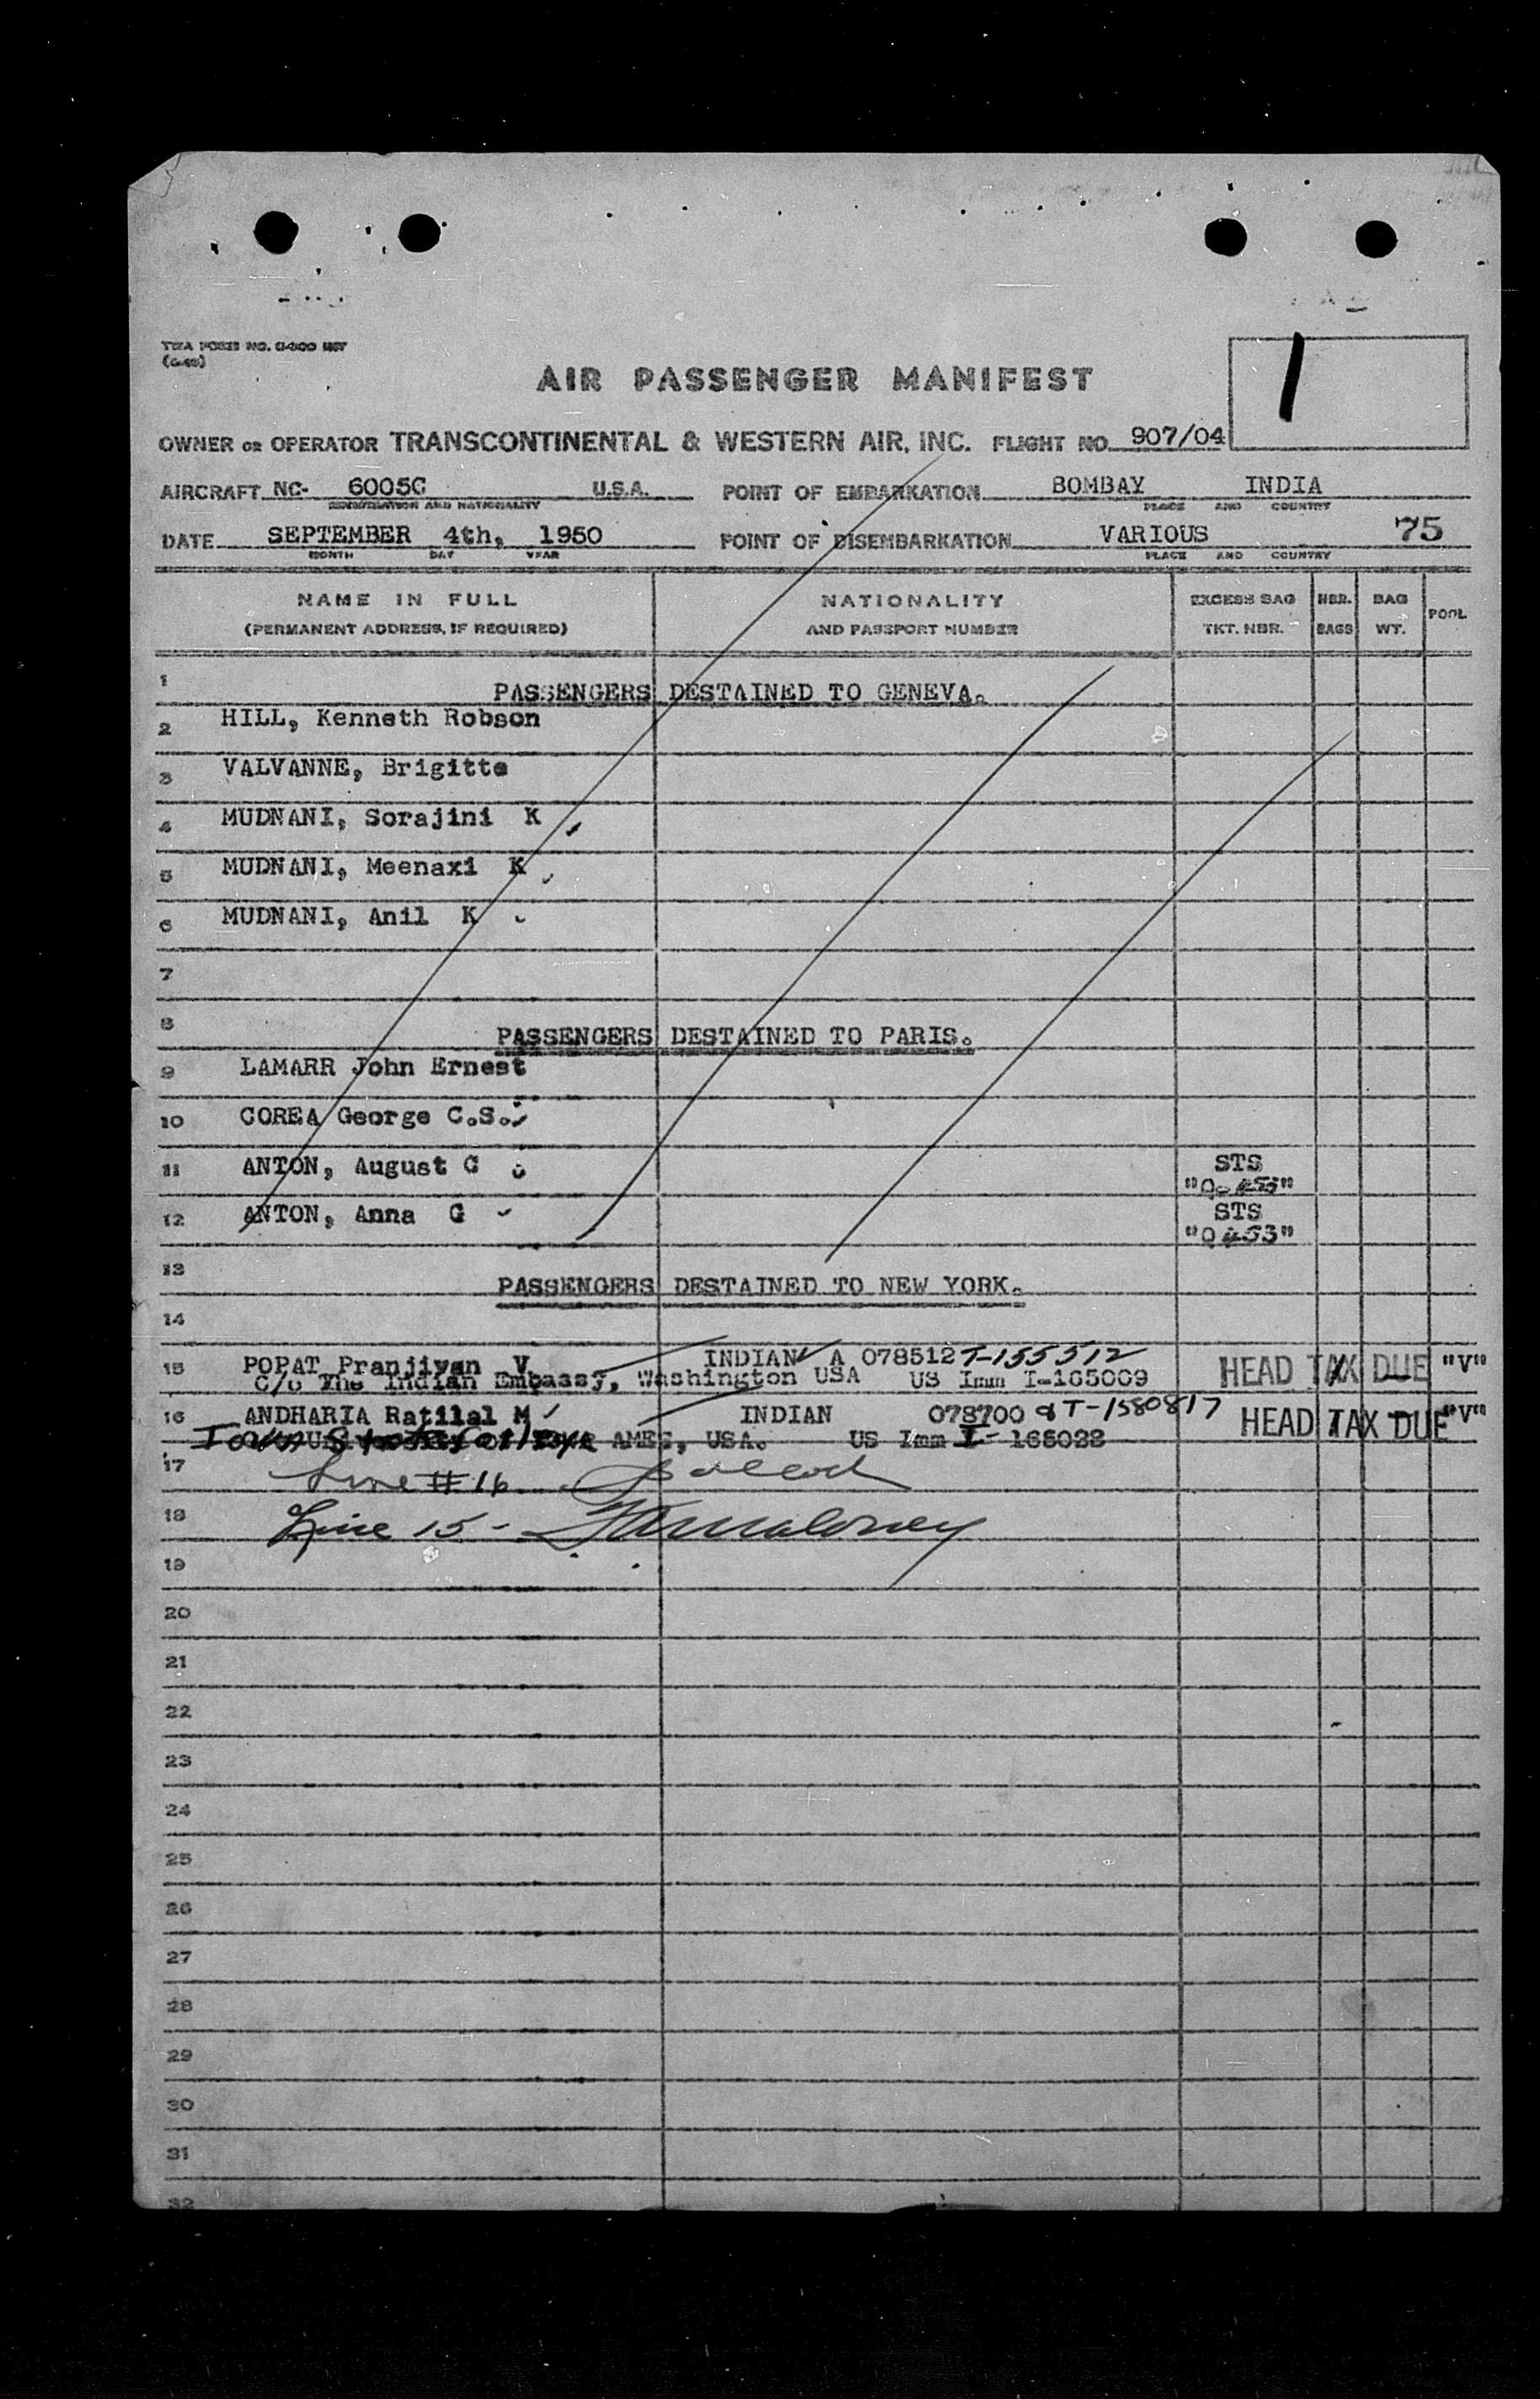 TWA FORM NO.
AIR PASSENGER MANIFEST
1
OWNER OR OPERATOR TRANSCONTINENTAL & WESTERN AIR, INC. FLIGHT NO. 907/04
AIRCRAFT NC- 6005C U.S.A. POINT OF EMBARKATION BOMBAY INDIA
REGISTRATION AND NATIONALITY PLACE AND COUNTRY
DATE SEPTEMBER 4th, 1950 POINT OF DISEMBARKATION VARIOUS 75
MONTH DAY YEAR PLACE AND COUNTRY
NAME IN FULL NATIONALITY EXCESS BAG NBR. BAG POOL
(PERMANENT ADDRESS, IF REQUIRED) AND PASSPORT NUMBER TKT. NBR. BAGS WT.
1 PASSENGERS DESTAINED TO GENEVA.
2 HILL, Kenneth Robson
3 VALVANNE, Brigitte
4 MUDNANI, Sorajini K
5 MUDNANI, Meenaxi K
6 MUDNANI, Anil K
7
8 PASSENGERS DESTAINED TO PARIS.
9 LAMARR John Ernest
10 COREA George C.S.
11 ANTON, August G STS
12 ANTON, Anna G STS
13 PASSENGERS DESTAINED TO NEW YORK.
14
15 POPAT Pranjivan V INDIAN A 078512 T-155512 HEAD TAX DUE "V"
C/O The Indian Embassy, Washington USA US Imm I-165009
16 ANDHARIA Ratilal M INDIAN 078700 T-1580817 HEAD TAX DUE "V"
Iowa State AMES, USA. US Imm I- 165028
17 Line #16
18 Line 15-
19
20
21
22
23
24
25
26
27
28
29
30
31
32